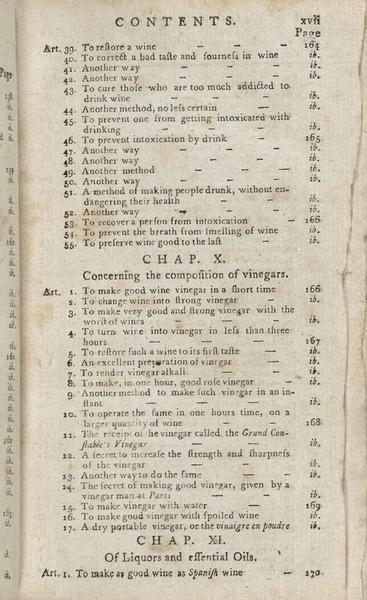 CONTENTS. xvii
Page
Art. 39. To reſtore a wine — — — 164
40. To correct a bad taſte and ſourneſs in wine ib.
41. Another way — — — ib.
42. Another way — — — ib.
43. To cure thoſe who are too much addicted to
drink wine — — — ib.
44. Another method, no leſs certain — ib.
45. To prevent one from getting intoxicated with
drinking — — — ib.
46. To prevent intoxication by drink — 165
47. Another way — — — ib.
48. Another way — — — ib.
49. Another method — — — ib.
50. Another way — — — ib.
51. A method of making people drunk, without en-
dangering their health — — ib.
52. Another way — — — ib.
53. To recover a perſon from intoxication — 166
54. To prevent the breath from ſmelling of wine ib.
55. To preſerve wine good to the laſt — ib.
CHAP. X.
Concerning the compoſition of vinegars.
Art. 1. To make good wine vinegar in a ſhort time 166
2. To change wine into ſtrong vinegar — ib.
3. To make very good and ſtrong vinegar with the
worſt of wines — — — ib.
4. To turn wine into vinegar in leſs than three
hours — — — 167
5. To reſtore ſuch a wine to its firſt taſte — ib.
6. An excellent preparation of vinegar — ib.
7. To render vinegar alkali — — ib.
8. To make, in one hour, good roſe vinegar — ib.
9. Another method to make ſuch vinegar in an in-
ſtant — — — ib.
10. To operate the ſame in one hours time, on a
larger quantity of wine — — 168
11. The receipt of the vinegar called the Grand Con-
ſtable's Vinegar — — — ib.
12. A ſecret to increaſe the ſtrength and ſharpneſs
of the vinegar — — — ib.
13. Another way to do the ſame — — ib.
14. The ſecret of making good vinegar, given by a
vinegar man at Paris — — ib.
15. To make vinegar with water — 169
16. To make good vinegar with ſpoiled wine ib.
17. A dry portable vinegar, or the vinaigre en poudre ib.
CHAP. XI.
Of Liquors and eſſential Oils.
Art. 1. To make as good wine as Spaniſh wine — 170